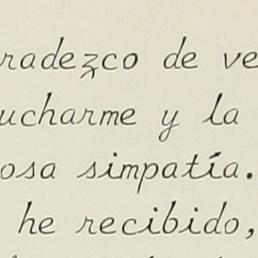 radezco de ve
ucharme y la
osa simpatía.
he recibido,